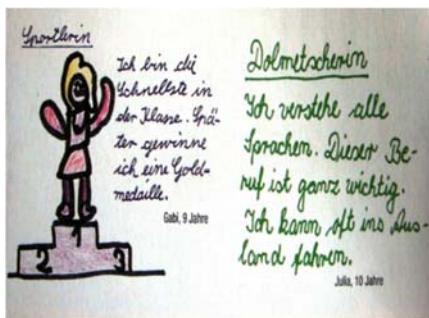 Sportlerin
Ich bin die
Schnellste in
der Klasse. Spä-
ter gewinne
ich eine Gold-
medaille.
Gabi, 9 Jahre
1
2
3
Dolmetscherin
Ich verstehe alle
Sprachen. Dieser Be-
ruf ist ganz wichtig.
Ich kann oft ins Aus-
land fahren.
Julia, 10 Jahre